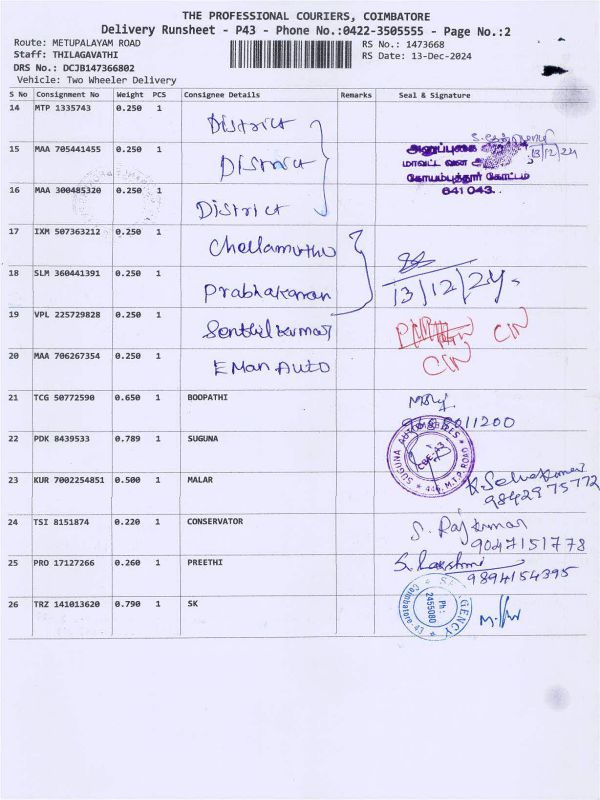 THE PROFESSIONAL COURIERS, COIMBATORE
Delivery Runsheet - P43 - Phone No.:0422-3505555 - Page No.:2
Route: METUPALAYAM ROAD RS No.: 1473668
Staff: THILAGAVATHI RS Date: 13-Dec-2024
DRS No.: DCJB147366802
Vehicle: Two Wheeler Delivery
S No Consignment No Weight PCS Consignee Details Remarks Seal & Signature
14 MTP 1335743 0.250 1 District
15 MAA 705441455 0.250 1 District 13/12/24
அணுப்புகை
மாவட்ட வன
கோயம்புத்தூர் கோட்டம்
641 043.
16 MAA 300485320 0.250 1 District
17 IXM 507363212 0.250 1 Chellamuthu
18 SLM 360441391 0.250 1 Prabhakaran 13/12/24
19 VPL 225729828 0.250 1 Senthil kumar CIN
20 MAA 706267354 0.250 1 EMan Auto CIN
21 TCG 50772590 0.650 1 BOOPATHI
22 PDK 8439533 0.789 1 SUGUNA
SUGUNA 446, M.T.P. ROAD CBE-43
23 KUR 7002254851 0.500 1 MALAR K. Selvakumar
9842975772
24 TSI 8151874 0.220 1 CONSERVATOR S. Rajkumar
9047151778
25 PRO 17127266 0.260 1 PREETHI S. Lakshmi
9894154395
26 TRZ 141013620 0.790 1 SK
AGENCY Ph : 2455080 Coimbatore-43